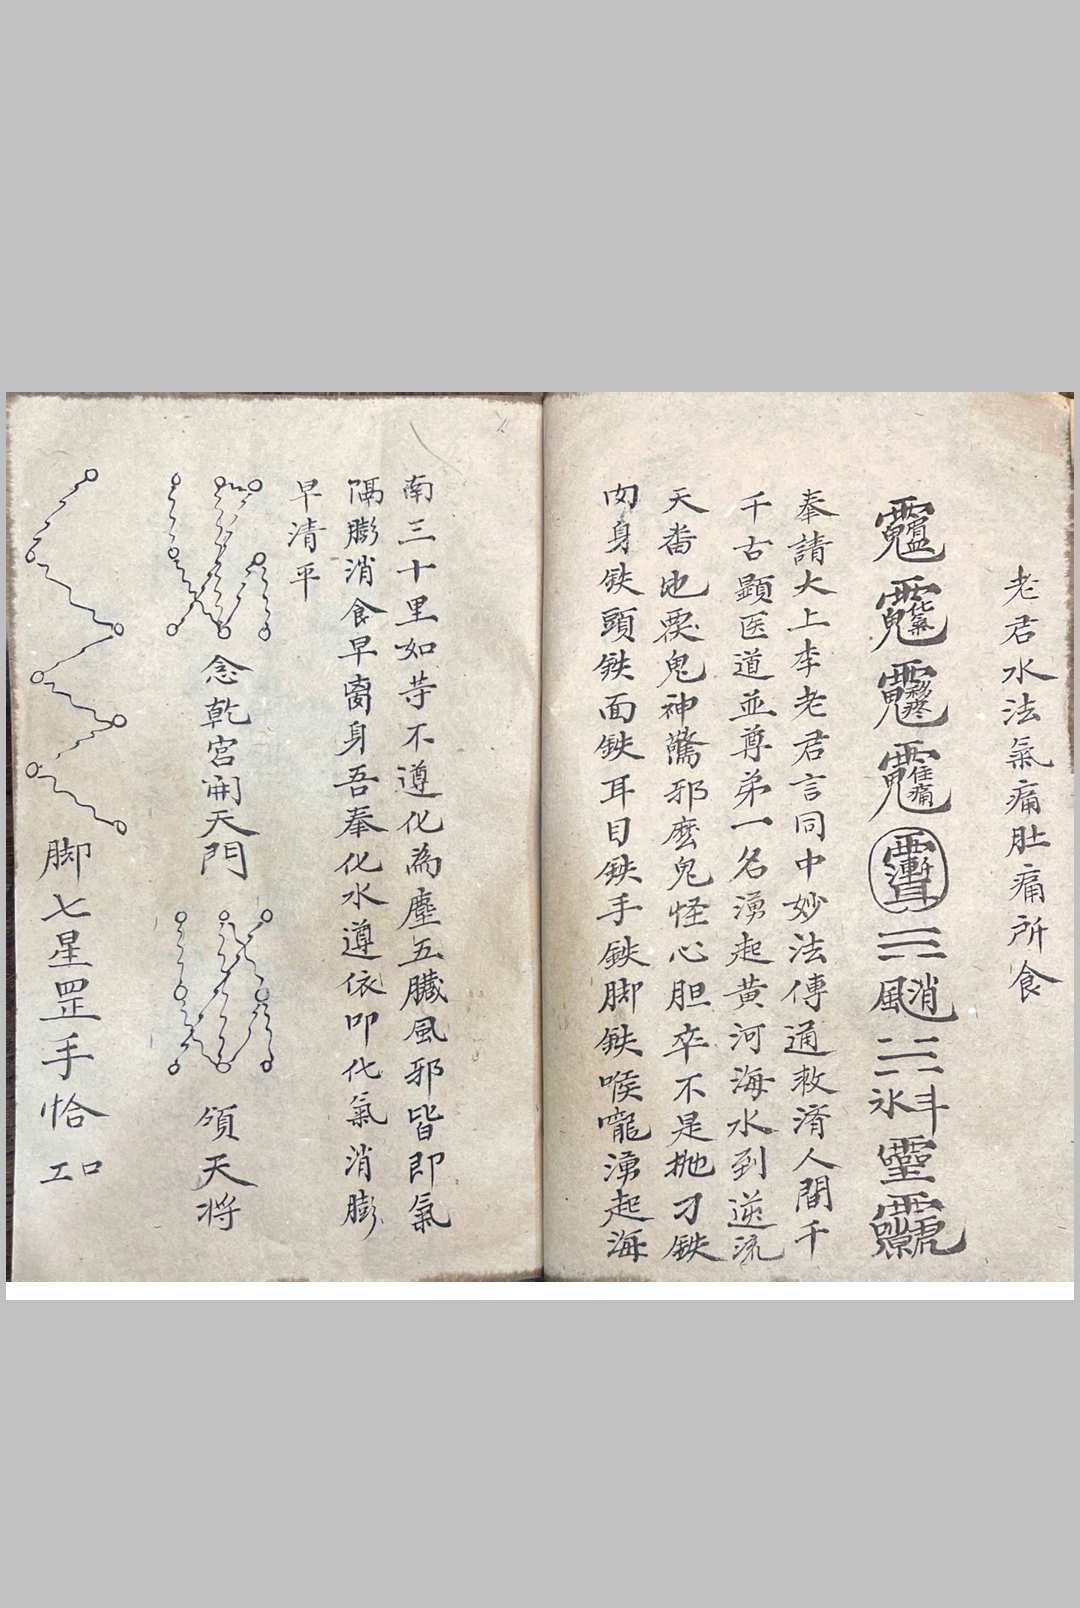 老君水法氣痛肚痛所食
風消
奉請大上李老君言同中妙法傳通救濟人間千
千古顕医道並尊弟一名湧起黄河海水到逆流
天番地覆鬼神驚邪麽鬼怪心胆卒不是抛刁鉄
肉身鉄頭鉄面鉄耳目鉄手鉄脚鉄喉嚨湧起海
南三十里如若不遵化為塵五臟風邪皆即氣
隔膨消食早离身吾奉化水遵依叩化氣消膨
早清平
念乾宮開天門
領天将
脚七星罡手恰
工口